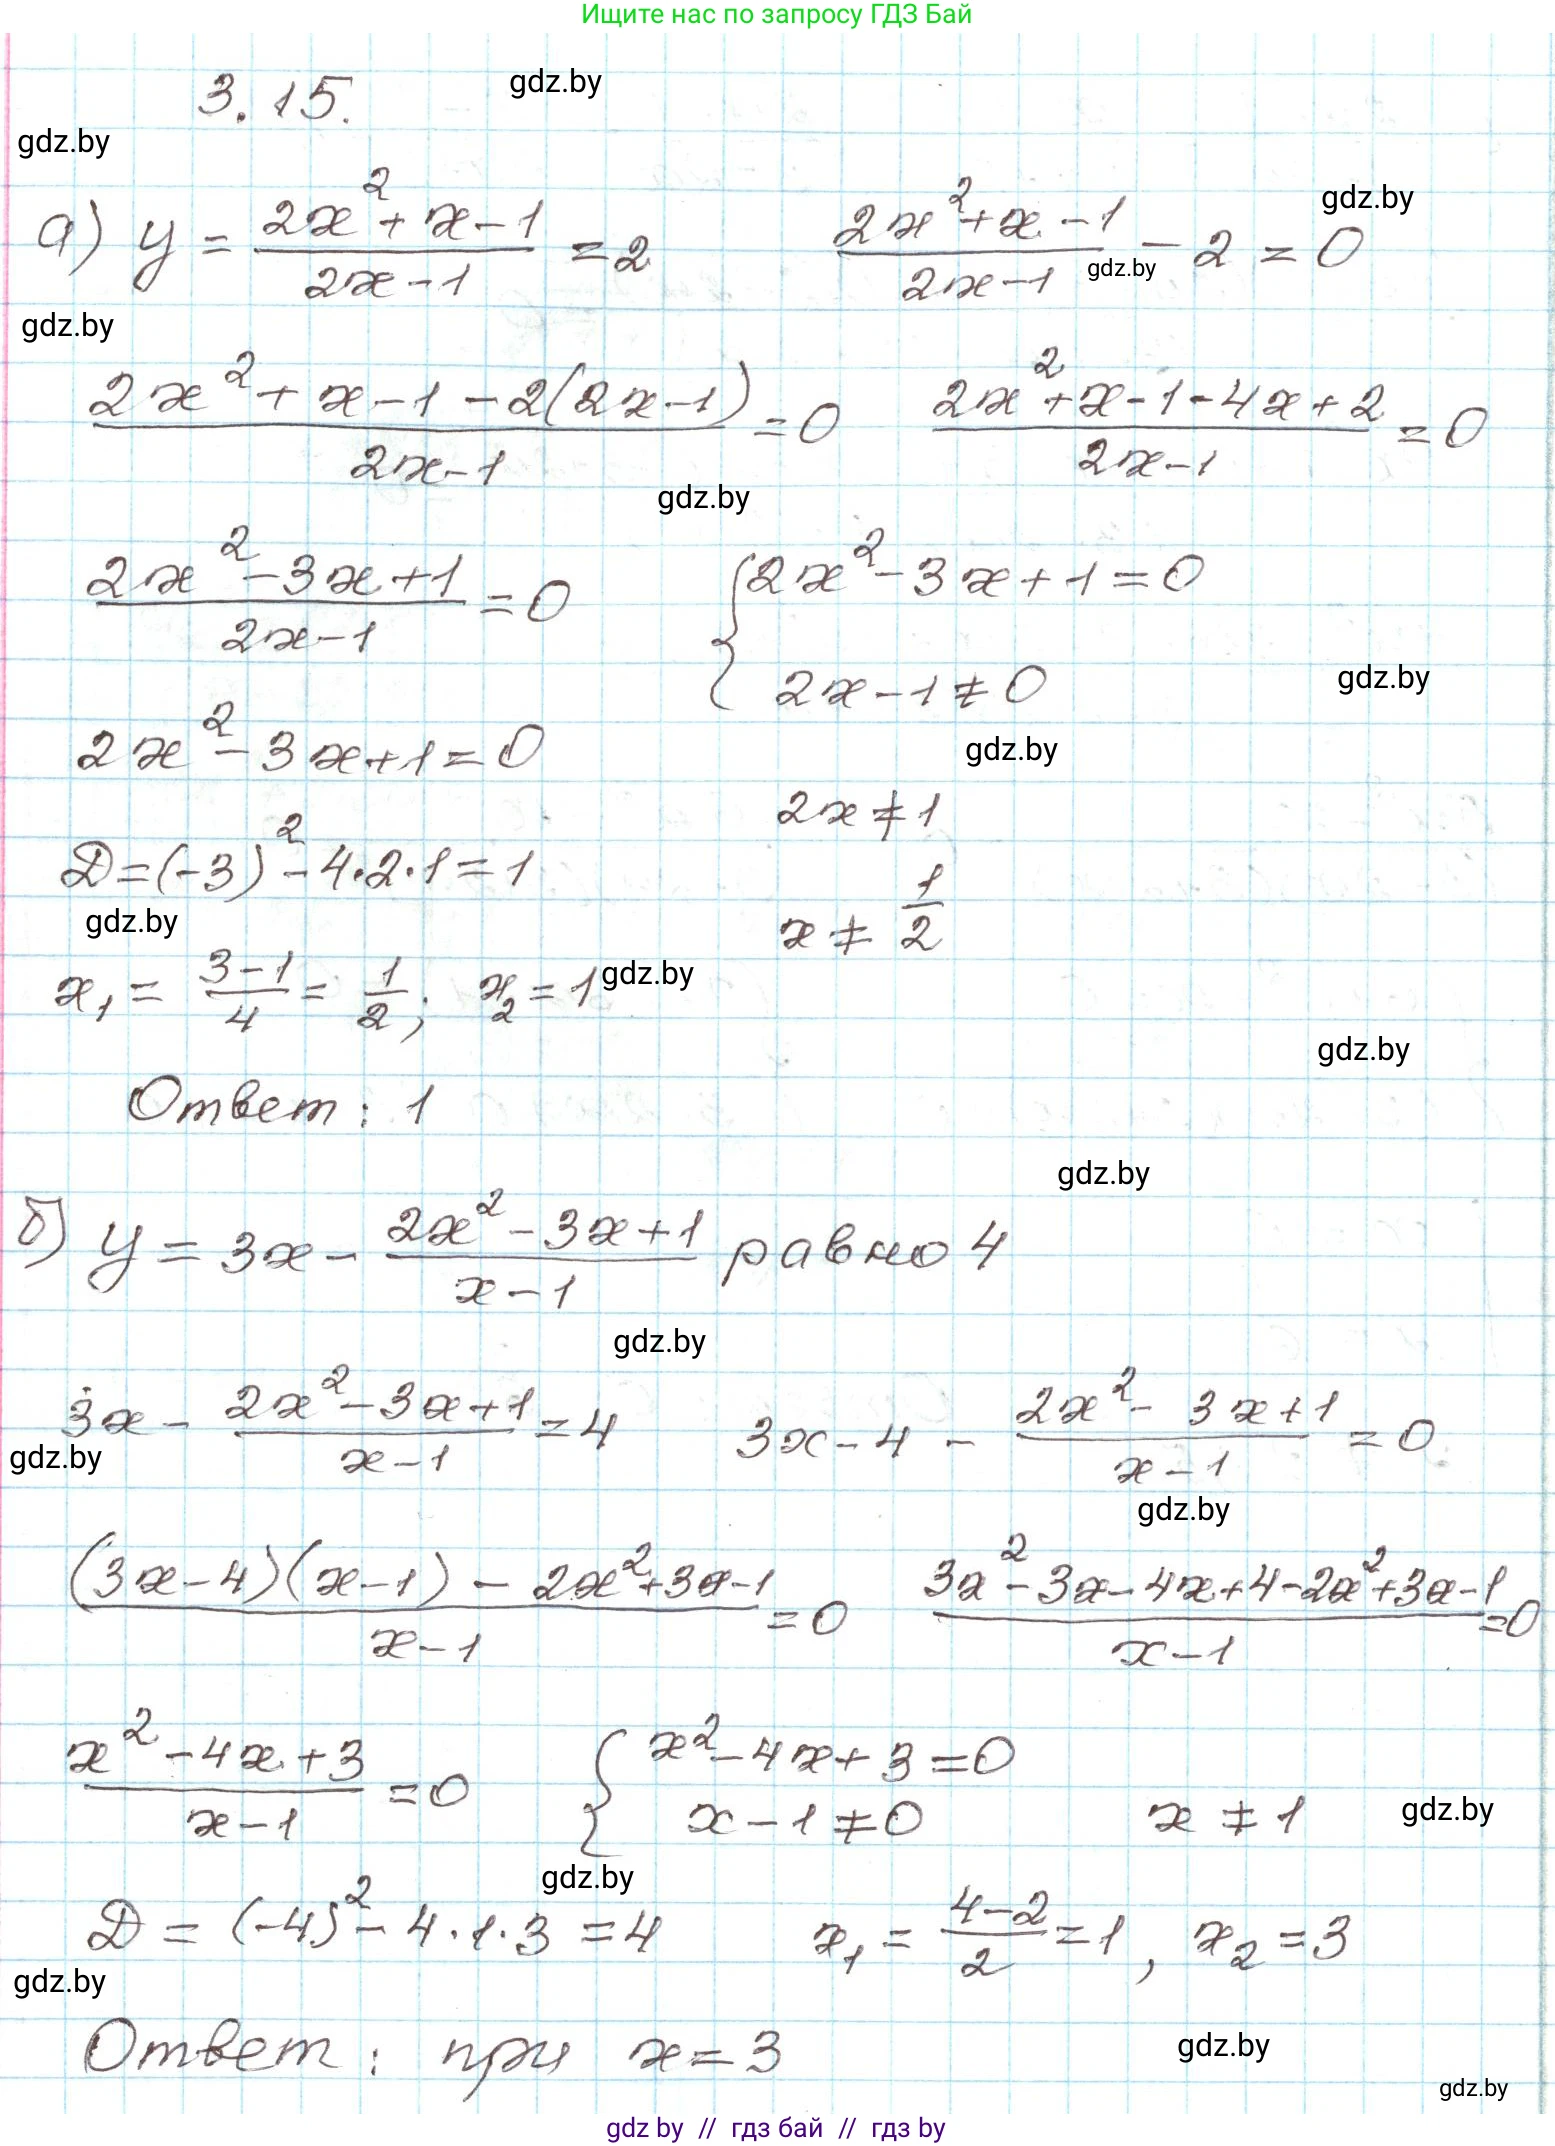 Ищите нас по запросу ГДЗ Бай
3.15.
gdz.by
gdz.by
а) y = (2x² + x - 1)/(2x - 1) = 2    (2x² + x - 1)/(2x - 1) - 2 = 0
gdz.by
gdz.by
gdz.by
(2x² + x - 1 - 2(2x - 1))/(2x - 1) = 0    (2x² + x - 1 - 4x + 2)/(2x - 1) = 0
gdz.by
(2x² - 3x + 1)/(2x - 1) = 0    { 2x² - 3x + 1 = 0
2x - 1 ≠ 0
gdz.by
2x² - 3x + 1 = 0
gdz.by
2x ≠ 1
D = (-3)² - 4·2·1 = 1
gdz.by
x ≠ 1/2
x₁ = (3 - 1)/4 = 1/2; x₂ = 1
gdz.by
gdz.by
Ответ: 1
gdz.by
б) y = 3x - (2x² - 3x + 1)/(x - 1) равно 4
gdz.by
3x - (2x² - 3x + 1)/(x - 1) = 4    3x - 4 - (2x² - 3x + 1)/(x - 1) = 0
gdz.by
gdz.by
((3x - 4)(x - 1) - 2x² + 3x - 1)/(x - 1) = 0    (3x² - 3x - 4x + 4 - 2x² + 3x - 1)/(x - 1) = 0
(x² - 4x + 3)/(x - 1) = 0    { x² - 4x + 3 = 0
x - 1 ≠ 0    x ≠ 1
gdz.by
gdz.by
D = (-4)² - 4·1·3 = 4    x₁ = (4 - 2)/2 = 1, x₂ = 3
gdz.by
Ответ: при x = 3
gdz.by
gdz.by
gdz by // гдз бай // гдз by